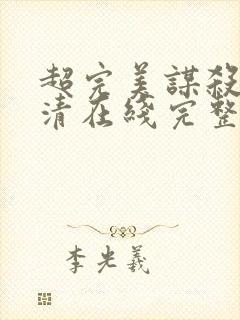 超完美謀殺
清在綫完整
李光羲